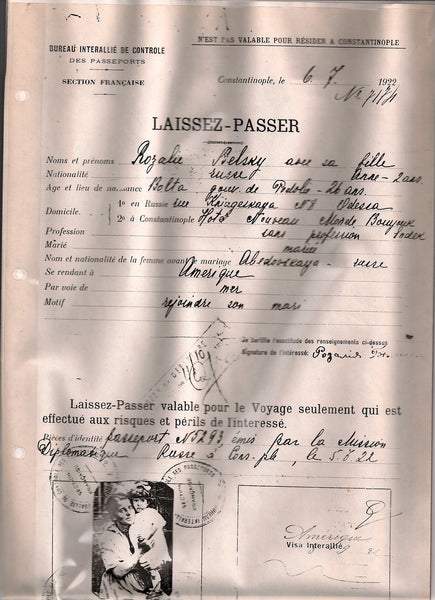 N'EST PAS VALABLE POUR RÉSIDER A CONSTANTINOPLE
BUREAU INTERALLIÉ DE CONTROLE
DES PASSEPORTS
SECTION FRANÇAISE
Constantinople, le 6 7 1922
LAISSEZ-PASSER
Noms et prénoms Rozalie Belsky avec sa fille
Nationalité russe Anne - 2 ans
Age et lieu de naissance Bolta gouv de Podolie - 26 ans.
Domicile. 1º en Russie rue Kniegeskaya Nº 8 Odessa
2º à Constantinople Hotel Nouveau Monde Bouyouk
Profession sans profession Index
Marié mariée
Nom et nationalité de la femme avant le mariage Abedovskaya - russe
Se rendant à Amérique
Par voie de mer
Motif rejoindre son mari
Je certifie l'exactitude des renseignements ci-dessus
Signature de l'intéressé:
Laissez-Passer valable pour le Voyage seulement qui est
effectué aux risques et périls de l'interessé.
Pièces d'identité passeport Nº 5293, émis par la Mission
Diplomatique Russe à Cons-ple, le 5.6.22
Amérique
Visa Interallié.